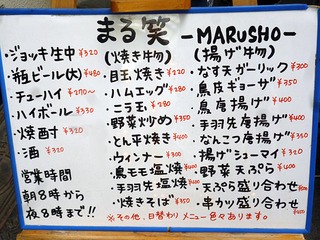 まる笑 -MARUSHO-
・ジョッキ生中 ¥320
・瓶ビール(大) ¥480
・チューハイ ¥270〜
・ハイボール ¥330
・焼酎 ¥320
・酒 ¥320
営業時間
朝8時から
夜8時まで!!
(焼き物)
・目玉焼き ¥220
・ハムエッグ ¥280
・ニラ玉 ¥280
・野菜炒め ¥350
・とん平焼き ¥400
・ウィンナー ¥300
・鳥モモ塩焼 ¥400
・手羽先塩焼 ¥400
・焼きそば ¥350
(揚げ物)
・なす天ガーリック ¥300
・鳥皮ギョーザ ¥350
・鳥唐揚げ ¥400
・手羽先唐揚げ ¥400
・なんこつ唐揚げ ¥350
・揚げシューマイ ¥320
・野菜天ぷら ¥400
・天ぷら盛り合わせ
・串カツ盛り合わせ ¥500
※その他、日替わりメニュー色々あります。